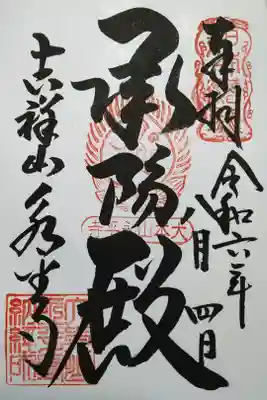 奉拝
令和六年
八月四日
承陽殿
吉祥山永平寺
大本山永平寺